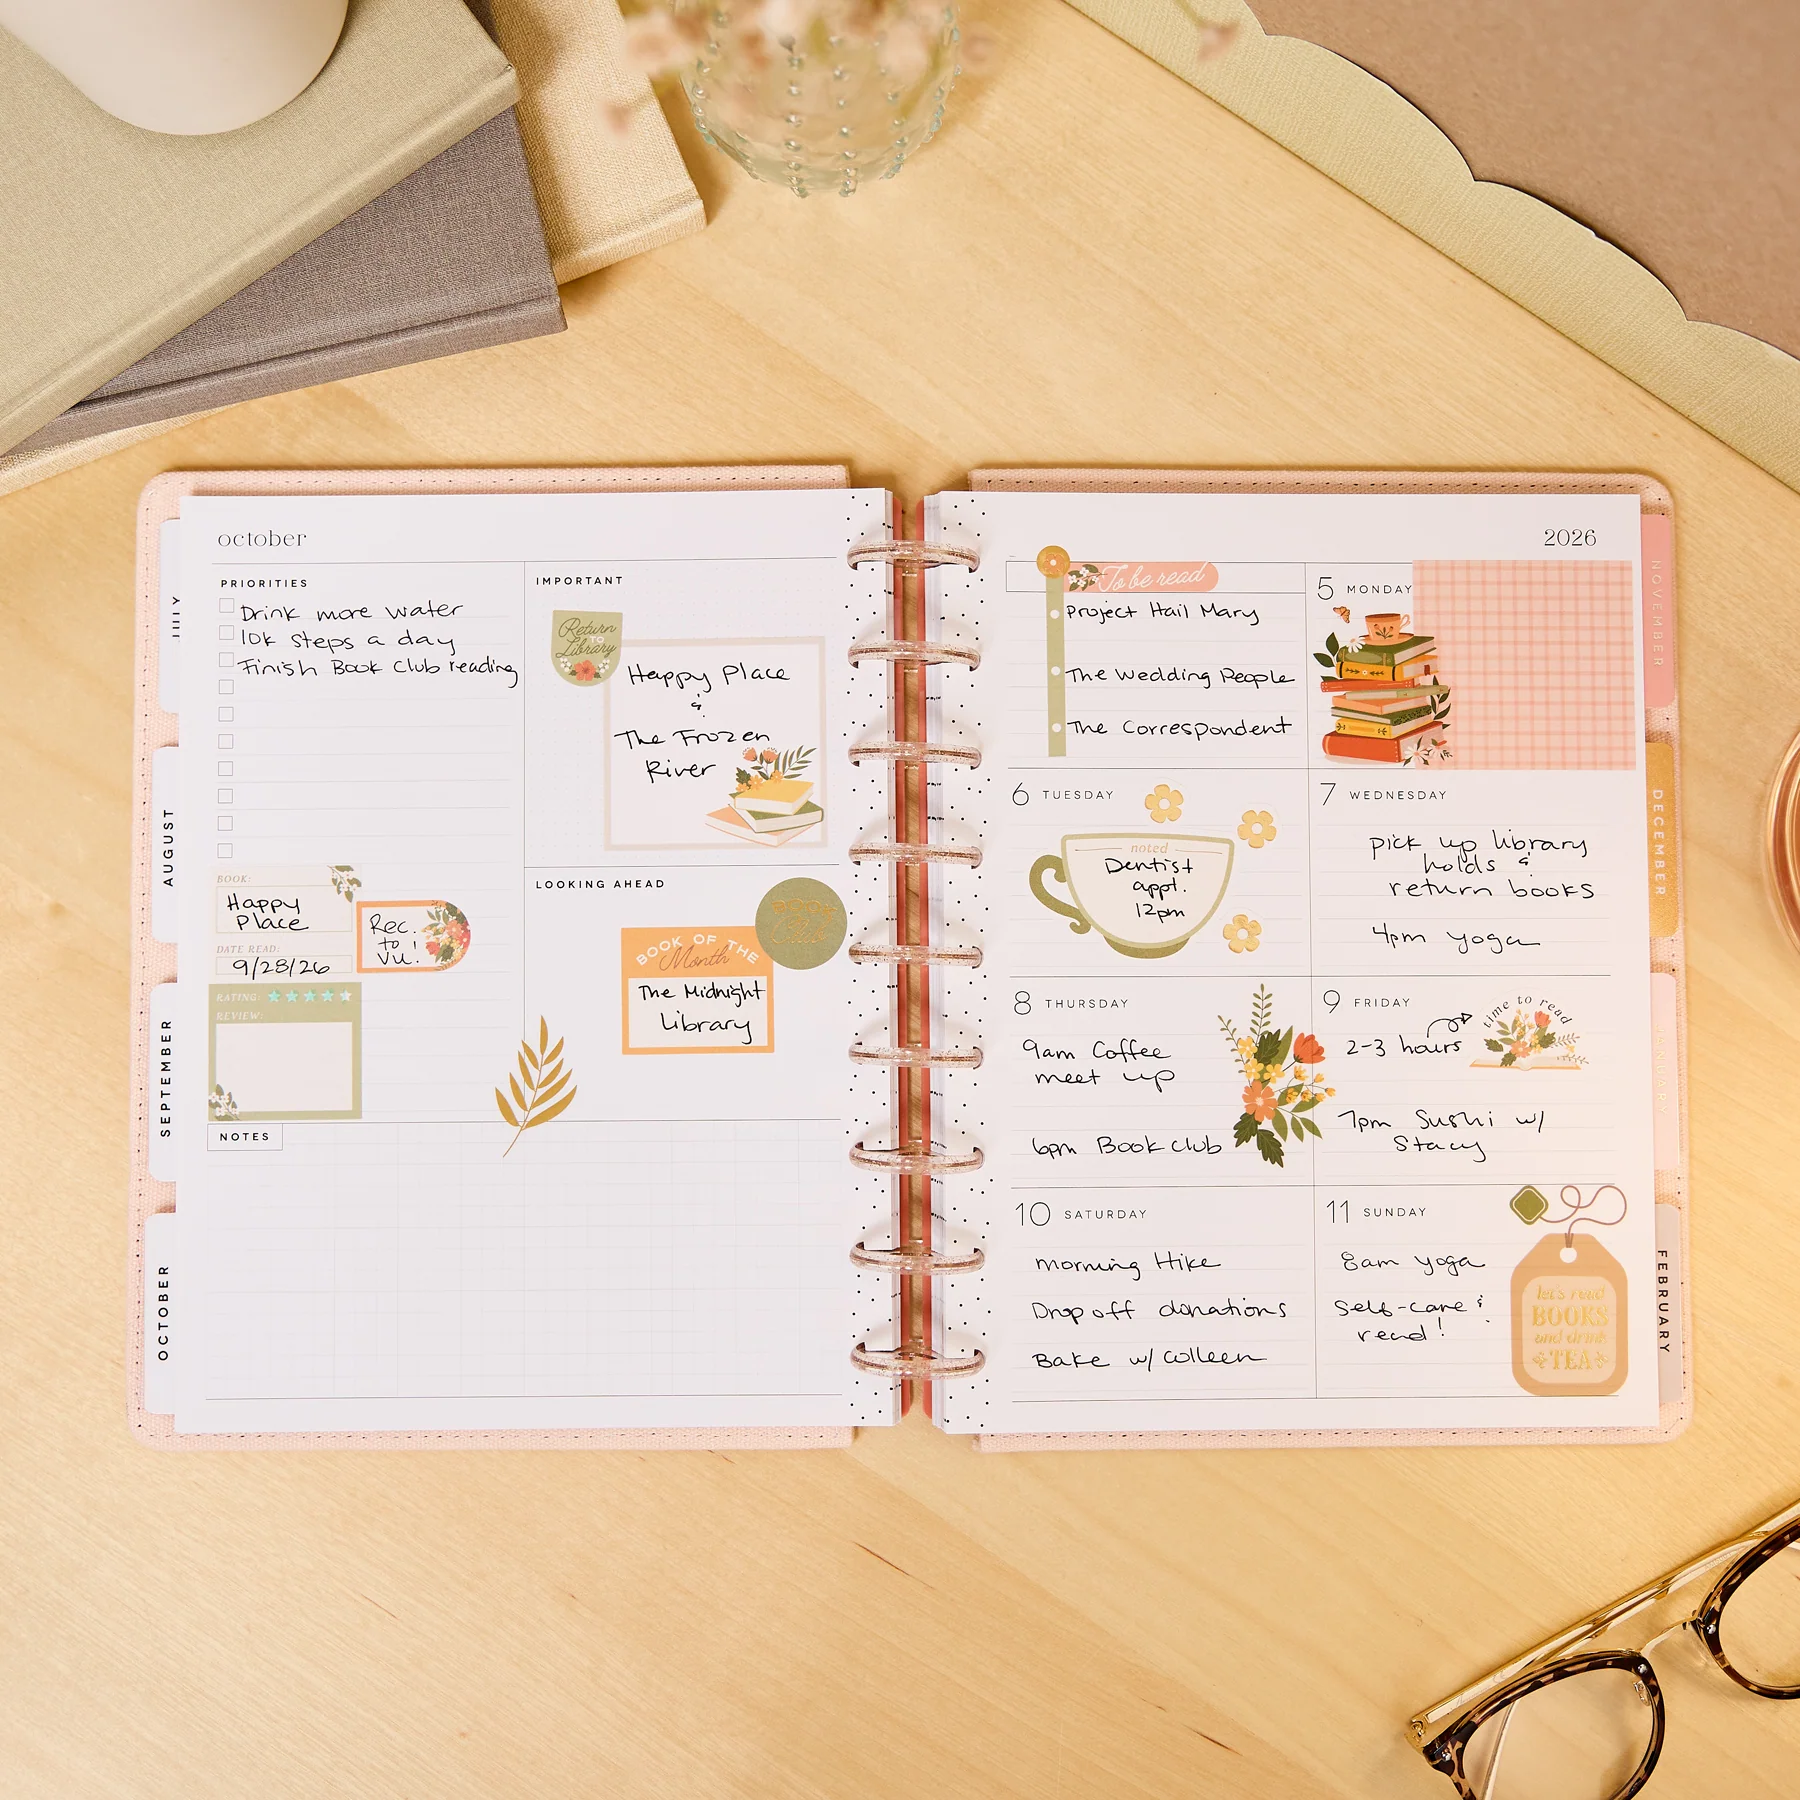 october
PRIORITIES
Drink more water
10k steps a day
Finish Book Club reading
BOOK:
Happy
Place
DATE READ:
9/28/26
Rec.
to
Vu!
RATING:
REVIEW:
NOTES
IMPORTANT
Return
TO
Library
Happy Place
&
The Frozen
River
LOOKING AHEAD
BOOK
Club
BOOK OF THE
Month
The Midnight
Library
JULY
AUGUST
SEPTEMBER
OCTOBER
2026
To be read
Project Hail Mary
The Wedding People
The Correspondent
5 MONDAY
6 TUESDAY
noted
Dentist
appt.
12pm
7 WEDNESDAY
pick up library
holds &
return books
4pm yoga
8 THURSDAY
9am Coffee
meet up
6pm Book Club
9 FRIDAY
time to read
2-3 hours
7pm Sushi w/
Stacy
10 SATURDAY
morning Hike
Drop off donations
Bake w/ Colleen
11 SUNDAY
8am yoga
Self-care &
read!
let's read
BOOKS
and drink
TEA
NOVEMBER
DECEMBER
FEBRUARY